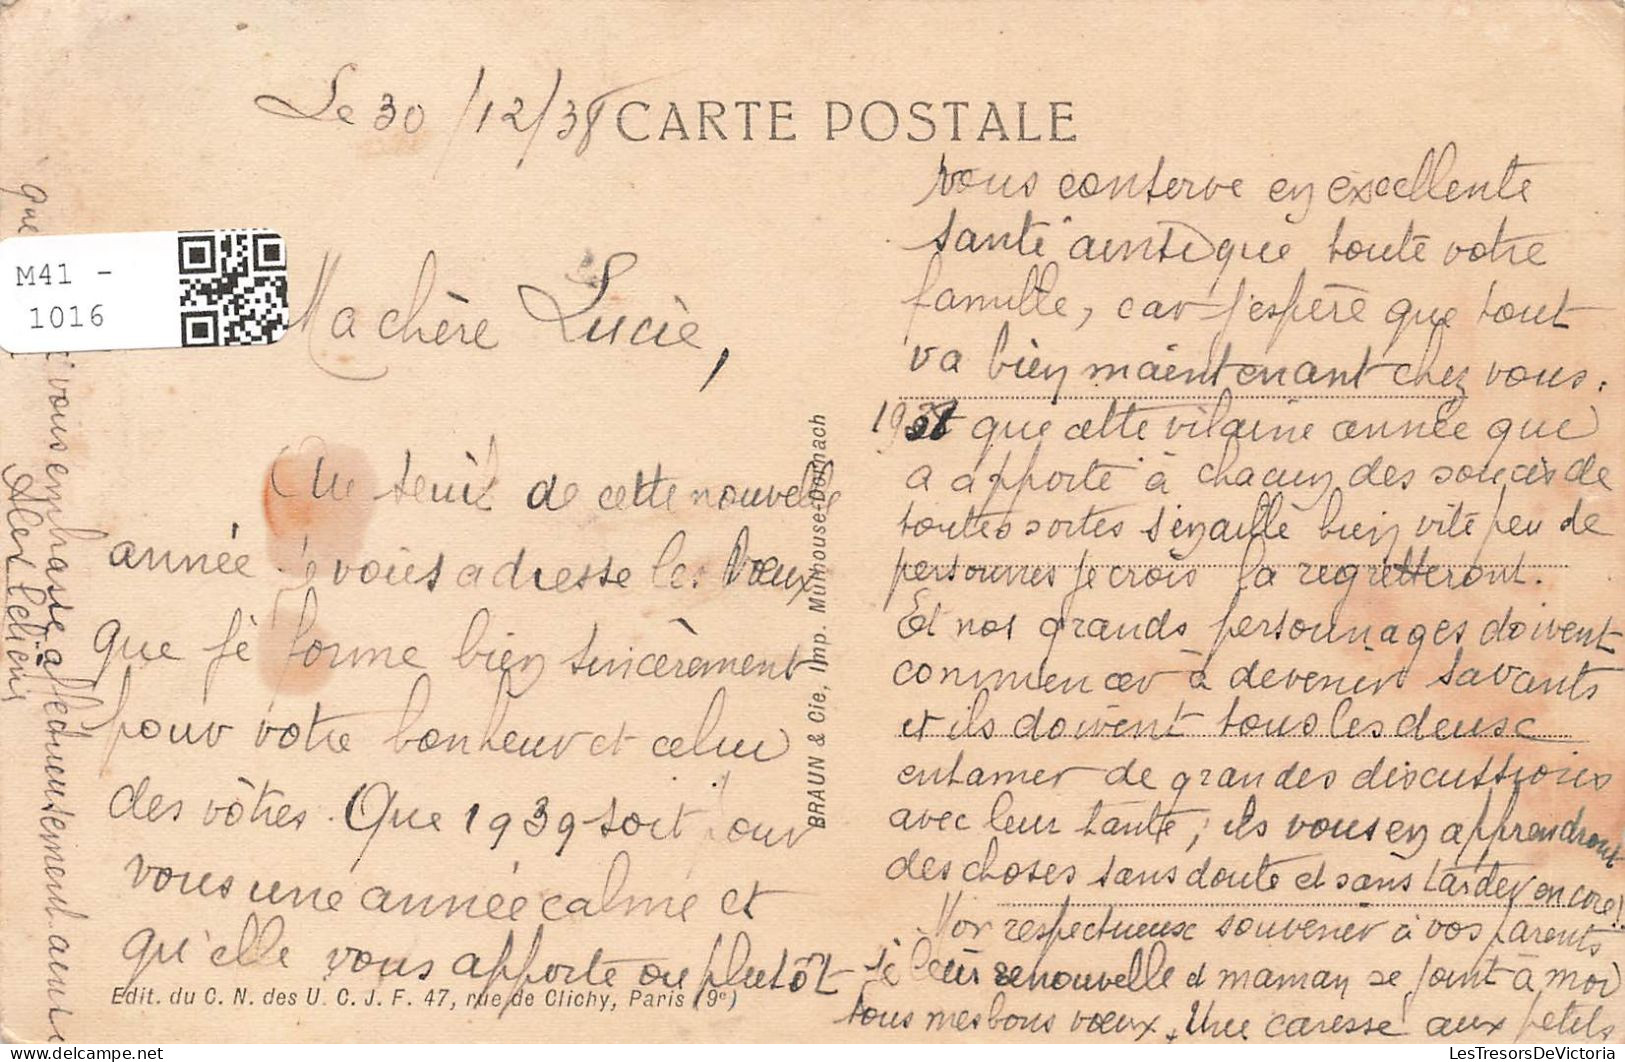 Le 30/12/38 CARTE POSTALE
M41 -
1016
Ma chère Lucie,
Au seuil de cette nouvelle
année je vous adresse les vœux
que je forme bien sincèrement
pour votre bonheur et celui
des vôtres. Que 1939 soit pour
vous une année calme et
qu'elle vous apporte ou plutôt
Edit. du C. N. des U. C. J. F. 47, rue de Clichy, Paris (9e)
BRAUN & Cie, Imp. Mulhouse-Dornach
vous conserve en excellente
santé ainsi que toute votre
famille, car j'espère que tout
va bien maintenant chez vous.
et que cette vilaine année 1938 que
a apporté à chacun des soucis de
toutes sortes s'en aille bien vite peu de
personnes je crois la regretteront.
Et nos grands personnages doivent
commencer à devenir savants
et ils doivent tous les deux
entamer de grandes discussions
avec leur tante, ils vous en apprendront
des choses sans doute et sans tarder encore!
Mon respectueux souvenir à vos parents
je leur renouvelle et maman se joint à moi
tous mes bons vœux. Une caresse aux petits
que vous embrasse affectueusement amie
LesTresorsDeVictoria